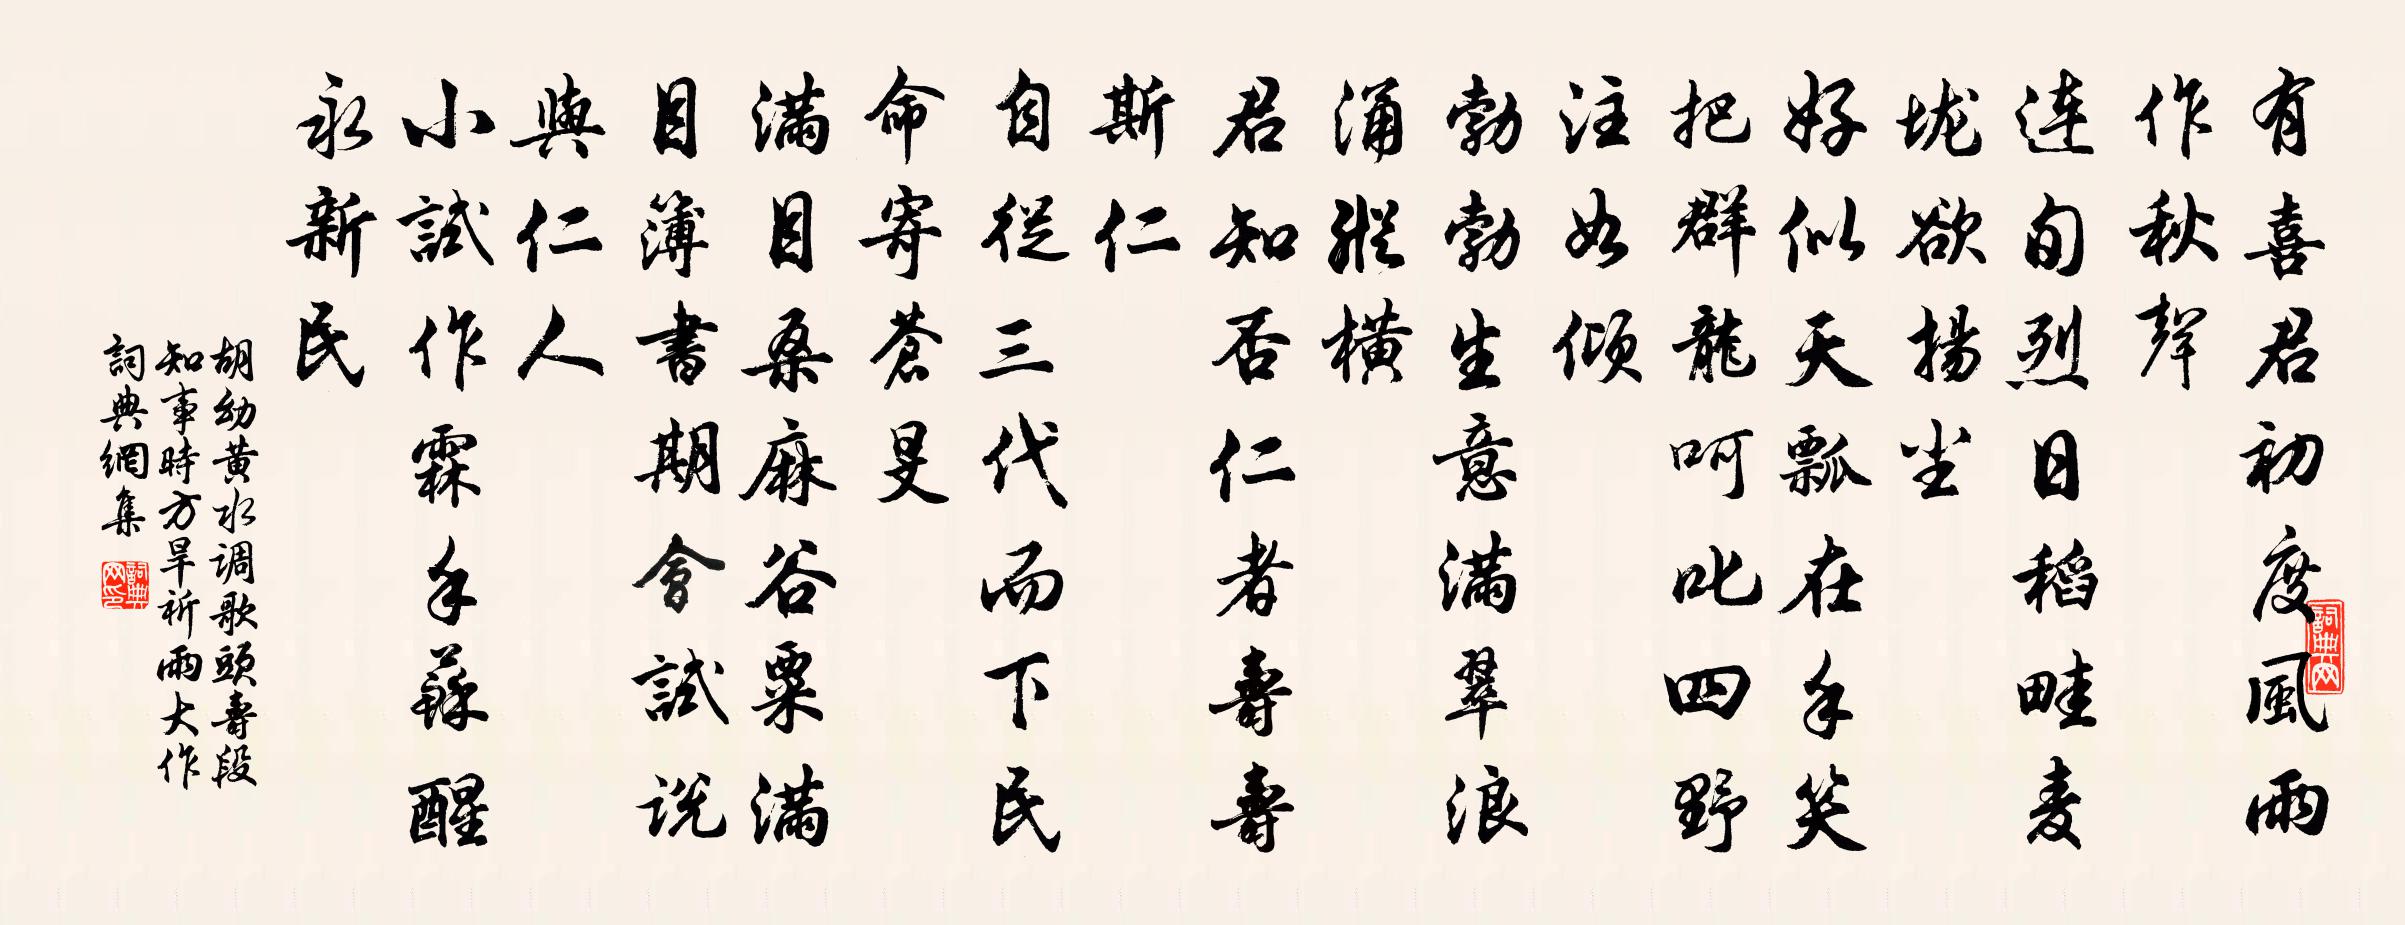 有喜君初度風雨
作秋聲
連旬烈日稻畦麦
垅欲揚尘
好似天瓢在手笑
把群龍呵叱四野
注如傾
勃勃生意满翠浪
涌縱横
君知否仁者壽壽
斯仁
自從三代而下民
命寄蒼旻
满目桑麻谷粟满
目簿書期會試説
與仁人
小試作霖手蘇醒
永新民
胡幼黄水调歌頭壽段
知事時方旱祈雨大作
詞典網集
詞典网
詞典网印